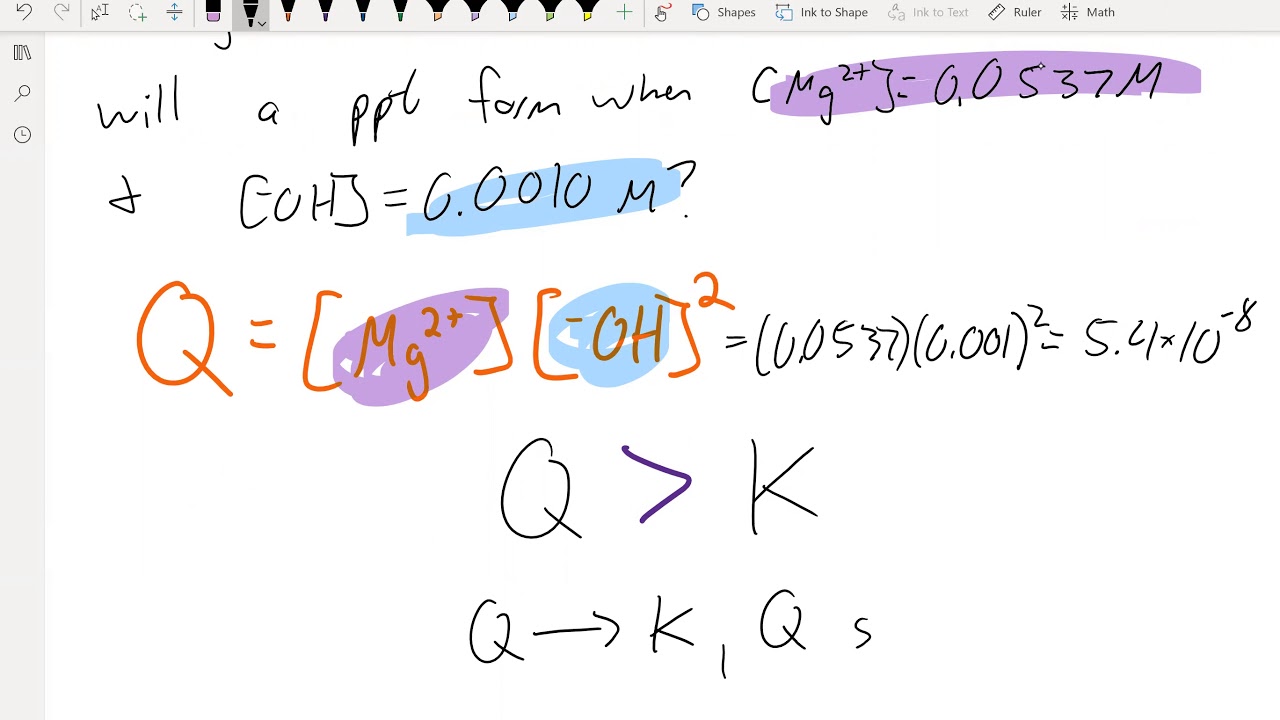 Shapes Ink to Shape Ink to Text Ruler Math
will a ppt form when [Mg²⁺]=0.0537M
& [⁻OH] = 0.0010 M?
Q = [Mg²⁺] [⁻OH]² = (0.0537)(0.001)² = 5.4×10⁻⁸
Q > K
Q → K, Q s